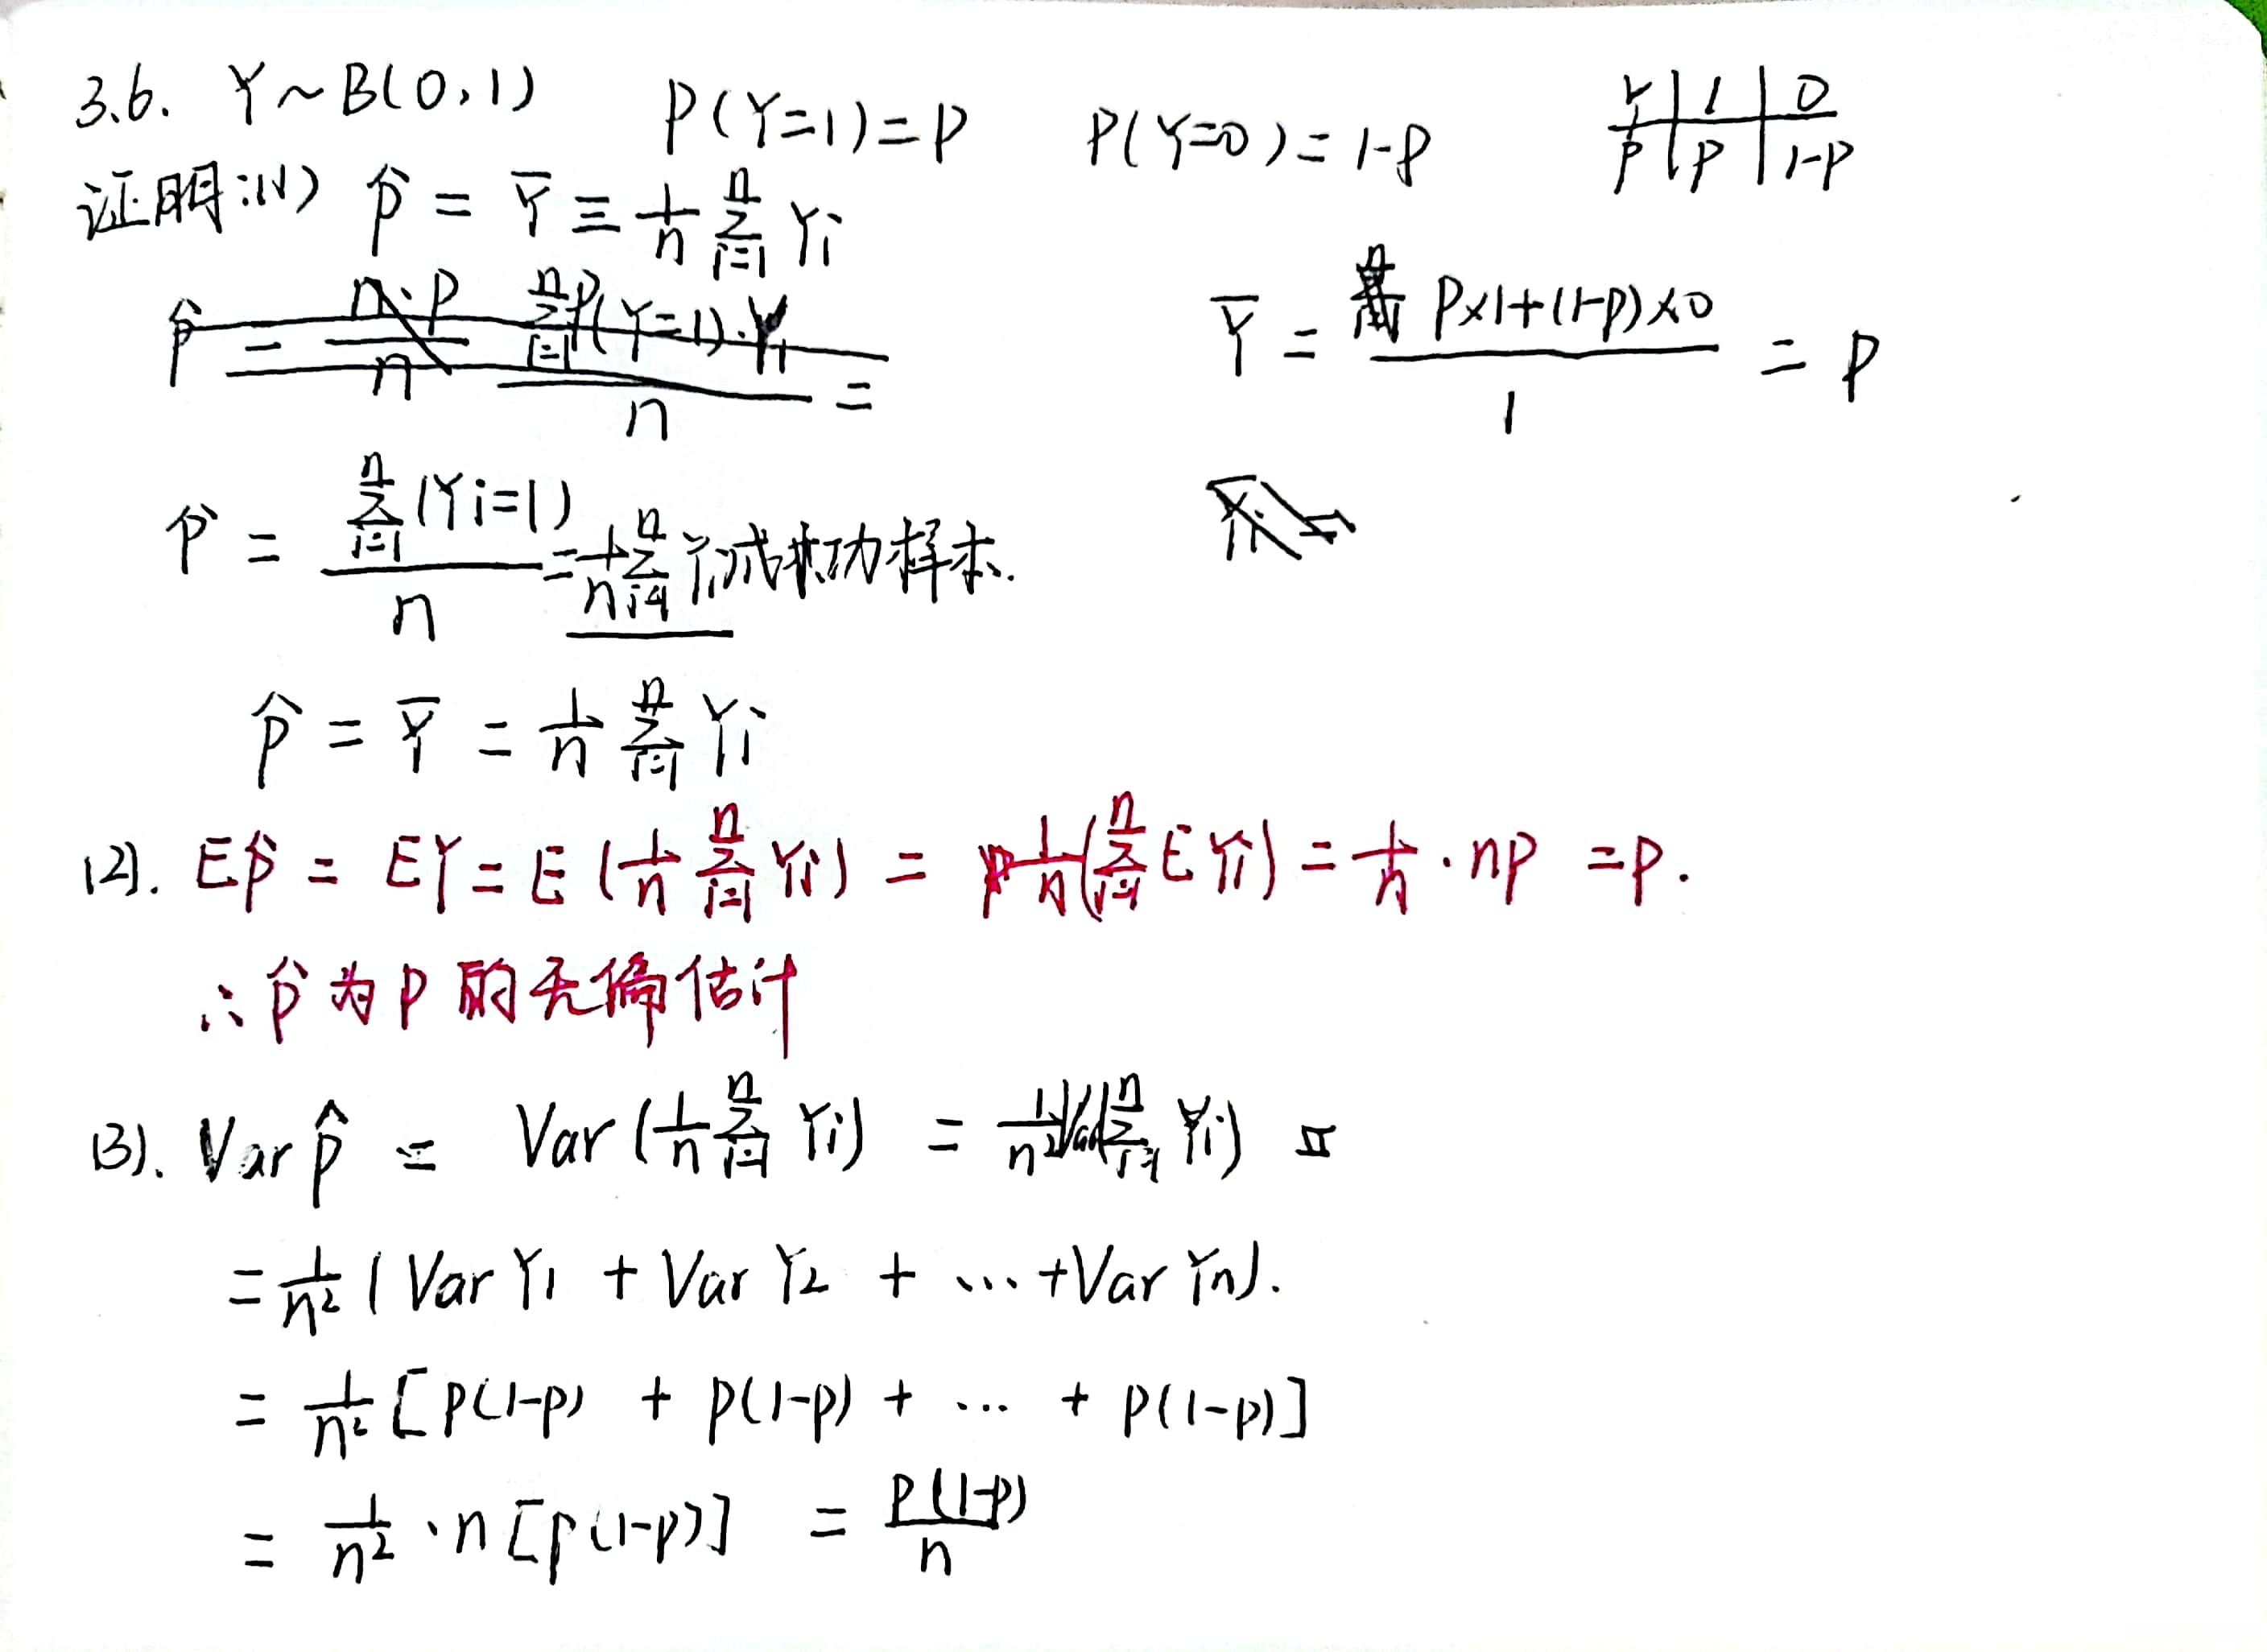 3.6. Y~B(0,1) P(Y=1)=P P(Y=0)=1-P
Y 1 0
P P 1-P
证明:(1) p̂ = Ȳ ≡ 1/n Σ_{i=1}^{n} Yi
Ȳ = (P×1+(1-P)×0)/1 = P
p̂ = Σ_{i=1}^{n}(Yi=1)/n = 1/n Σ_{i=1}^{n} Yi 成功样本.
p̂ = Ȳ = 1/n Σ_{i=1}^{n} Yi
(2). Ep̂ = EY = E(1/n Σ_{i=1}^{n} Yi) = 1/n(Σ_{i=1}^{n} EYi) = 1/n · np = p.
∴ p̂ 为 p 的无偏估计
(3). Var p̂ = Var(1/n Σ_{i=1}^{n} Yi) = 1/n² Var(Σ_{i=1}^{n} Yi) =
= 1/n² (Var Y1 + Var Y2 + … + Var Yn).
= 1/n² [P(1-P) + P(1-P) + … + P(1-P)]
= 1/n² · n [P(1-P)] = P(1-P)/n